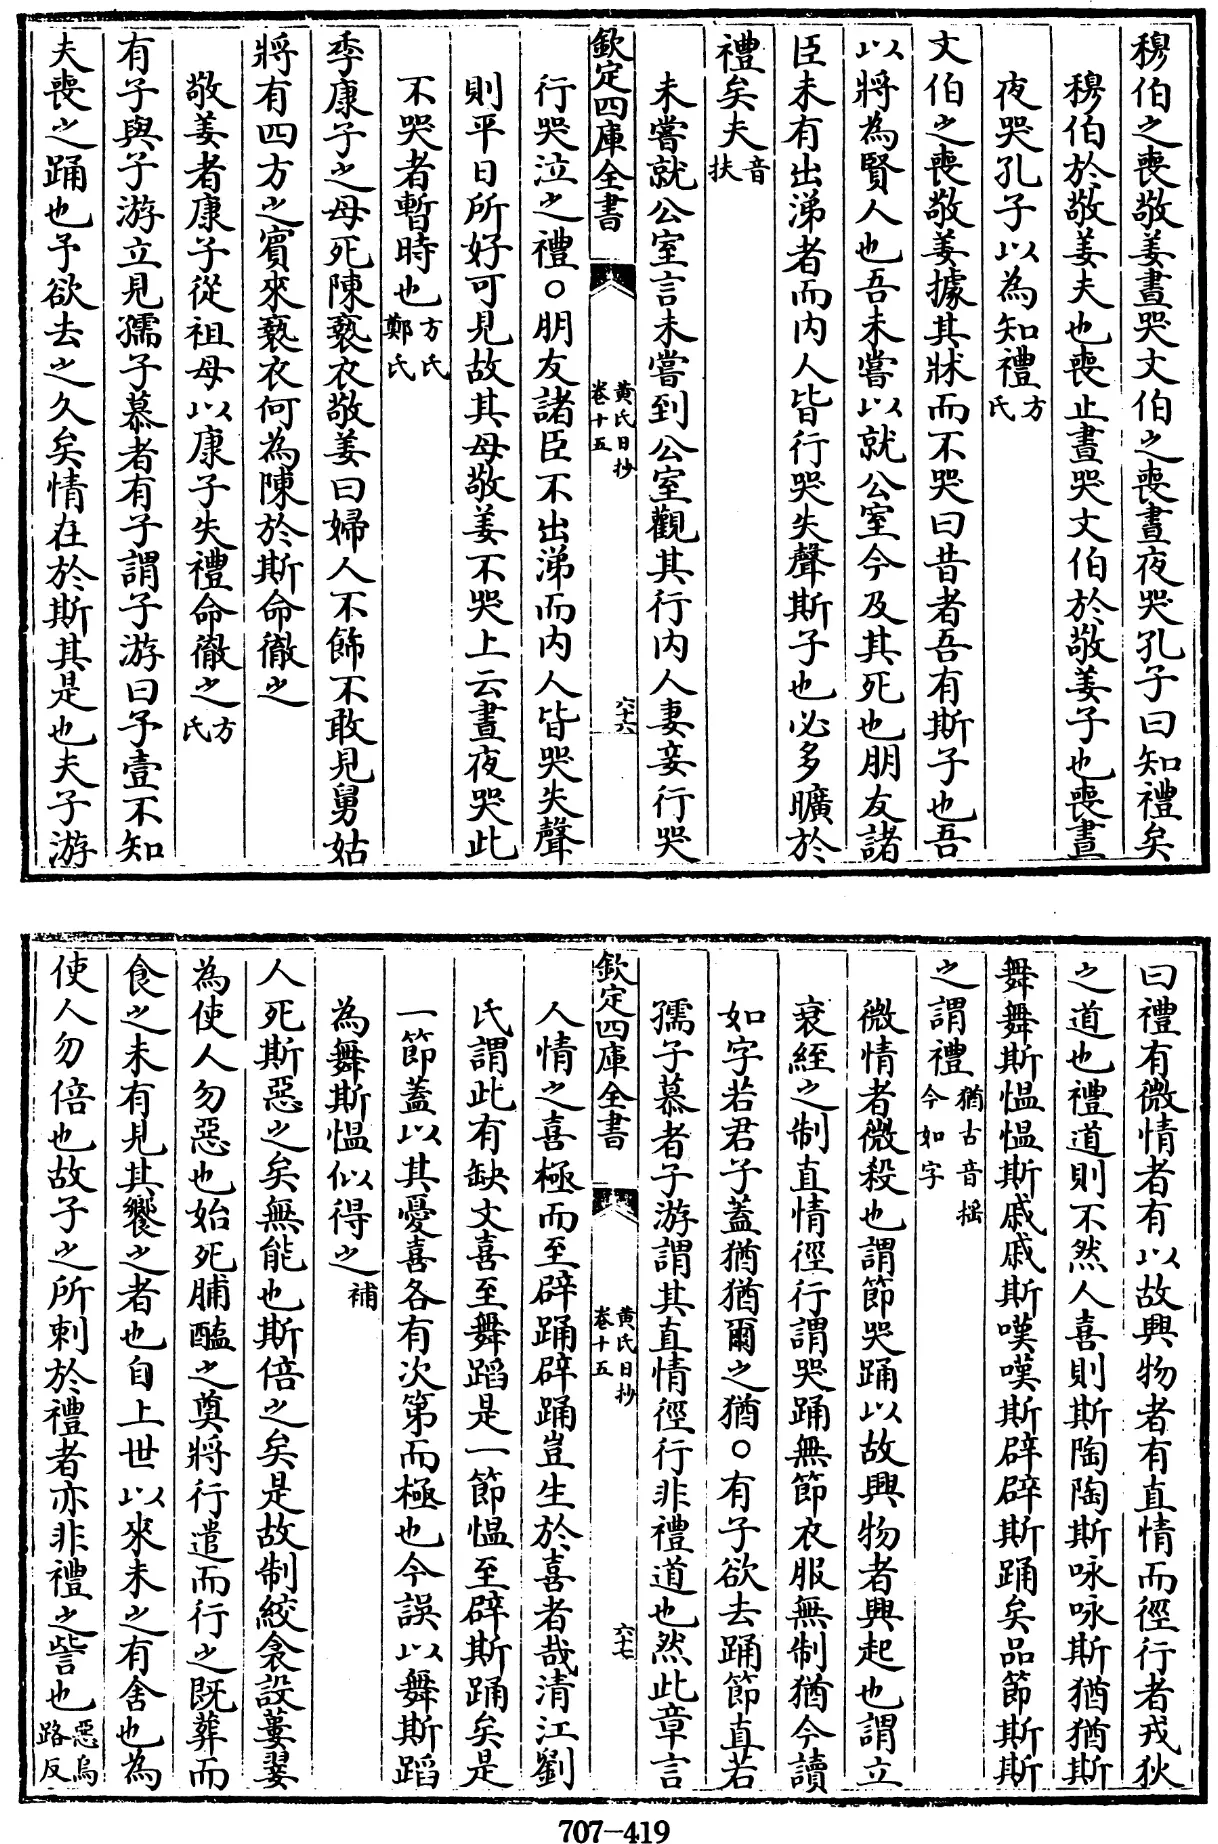 穆伯之喪敬姜晝哭文伯之喪晝夜哭孔子曰知禮矣
穆伯於敬姜夫也喪止晝哭文伯於敬姜子也喪晝
夜哭孔子以為知禮方氏
文伯之喪敬姜據其牀而不哭曰昔者吾有斯子也吾
以將為賢人也吾未嘗以就公室今及其死也朋友諸
臣未有出涕者而内人皆行哭失聲斯子也必多曠於
禮矣夫音扶
未嘗就公室言未嘗到公室觀其行内人妻妾行哭
欽定四庫全書 黃氏日抄卷十五 六十六
行哭泣之禮○朋友諸臣不出涕而内人皆哭失聲
則平日所好可見故其母敬姜不哭上云晝夜哭此
不哭者暫時也方氏鄭氏
季康子之母死陳褻衣敬姜曰婦人不飾不敢見舅姑
將有四方之賓來褻衣何為陳於斯命徹之
敬姜者康子從祖母以康子失禮命徹之方氏
有子與子游立見孺子慕者有子謂子游曰予壹不知
夫喪之踊也予欲去之久矣情在於斯其是也夫子游
曰禮有微情者有以故興物者有直情而徑行者戎狄
之道也禮道則不然人喜則斯陶陶斯咏咏斯猶猶斯
舞舞斯慍慍斯戚戚斯嘆嘆斯辟辟斯踊矣品節斯斯
之謂禮猶古音揺今如字
微情者微殺也謂節哭踊以故興物者興起也謂立
衰絰之制直情徑行謂哭踊無節衣服無制猶今讀
如字若君子蓋猶猶爾之猶○有子欲去踊節直若
孺子慕者子游謂其直情徑行非禮道也然此章言
欽定四庫全書 黃氏日抄卷十五 六十七
人情之喜極而至辟踊辟踊豈生於喜者哉清江劉
氏謂此有缺文喜至舞蹈是一節慍至辟斯踊矣是
一節蓋以其憂喜各有次第而極也今誤以舞斯蹈
為舞斯慍似得之補
人死斯惡之矣無能也斯倍之矣是故制絞衾設蔞翣
為使人勿惡也始死脯醢之奠將行遣而行之既葬而
食之未有見其饗之者也自上世以來未之有舍也為
使人勿倍也故子之所刺於禮者亦非禮之訾也惡烏路反
707-419